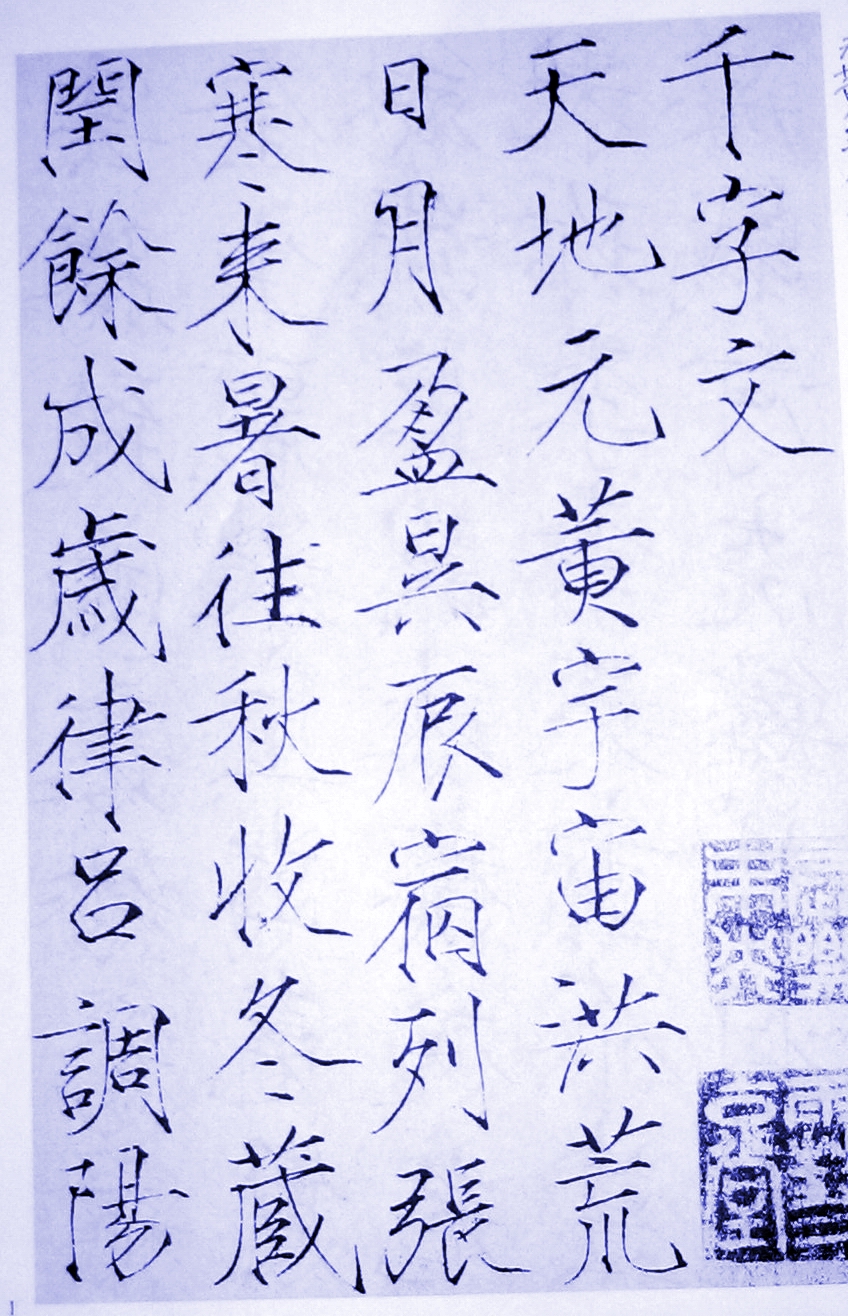 千字文
天地元黃宇宙洪荒
日月盈昃辰宿列張
寒来暑往秋收冬蔵
閏餘成歳律呂調陽
1